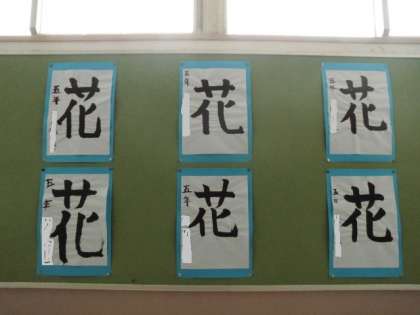 花
五年
花
五年
花
五年
花
五年
花
五年
花